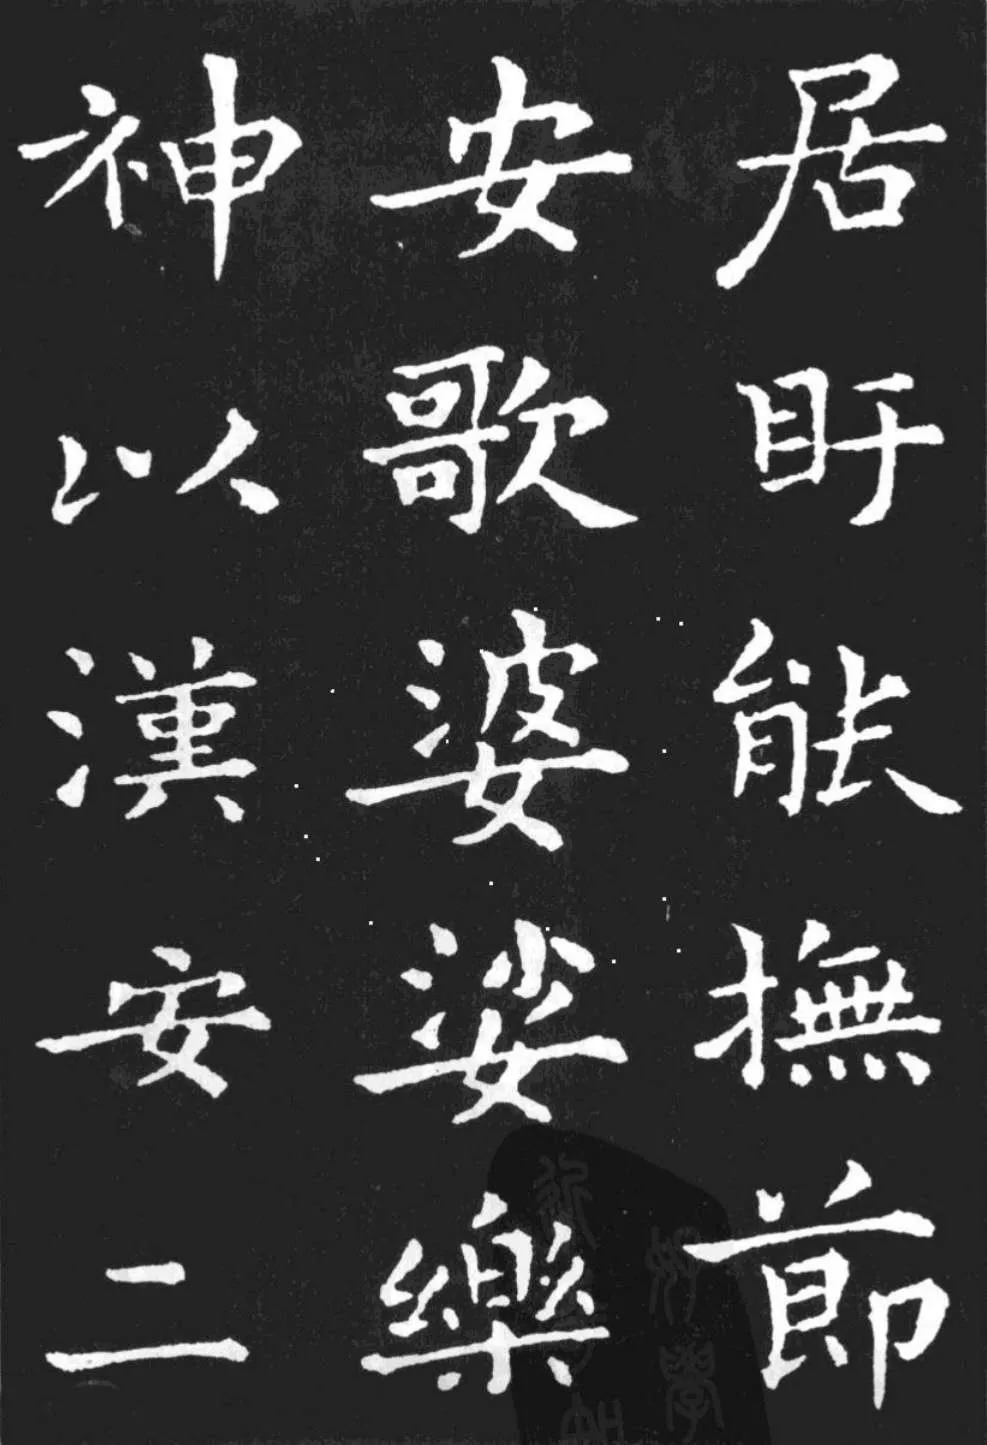 居盱能撫節
安歌婆娑樂
神以漢安二